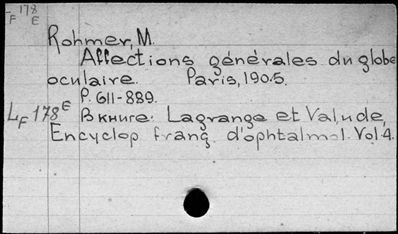 L 178
F E
Rohmer, M.
Affections générales du globe
oculaire. Paris, 1905.
P. 611-889.
LF 178E Вкниге: Lagrange et Valude,
Encyclop franç. d'ophtalmol. Vol 4.